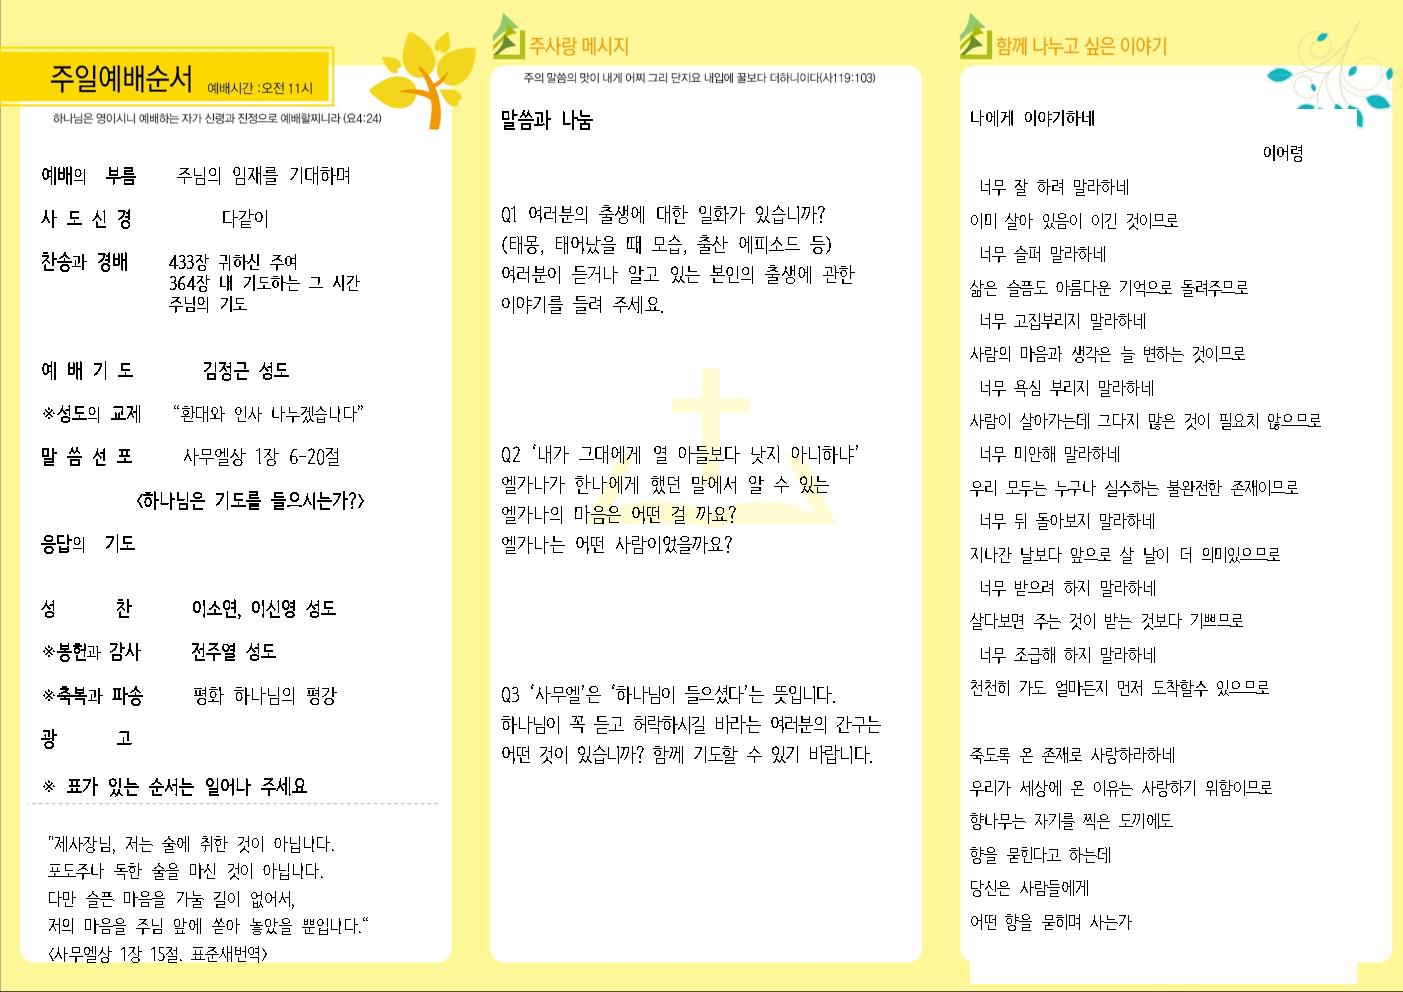 주일예배순서 예배시간 :오전 11시
하나님은 영이시니 예배하는 자가 신령과 진정으로 예배할찌니라 (요4:24)
예배의 부름 주님의 임재를 기대하며
사 도 신 경 다같이
찬송과 경배 433장 귀하신 주여
364장 내 기도하는 그 시간
주님의 기도
예 배 기 도 김정근 성도
※성도의 교제 “환대와 인사 나누겠습니다”
말 씀 선 포 사무엘상 1장 6-20절
<하나님은 기도를 들으시는가?>
응답의 기도
성 찬 이소연, 이신영 성도
※봉헌과 감사 전주열 성도
※축복과 파송 평화 하나님의 평강
광 고
※ 표가 있는 순서는 일어나 주세요
"제사장님, 저는 술에 취한 것이 아닙니다.
포도주나 독한 술을 마신 것이 아닙니다.
다만 슬픈 마음을 가눌 길이 없어서,
저의 마음을 주님 앞에 쏟아 놓았을 뿐입니다.“
<사무엘상 1장 15절. 표준새번역>
주사랑 메시지
주의 말씀의 맛이 내게 어찌 그리 단지요 내입에 꿀보다 더하니이다(사119:103)
말씀과 나눔
Q1 여러분의 출생에 대한 일화가 있습니까?
(태몽, 태어났을 때 모습, 출산 에피소드 등)
여러분이 듣거나 알고 있는 본인의 출생에 관한
이야기를 들려 주세요.
Q2 ‘내가 그대에게 열 아들보다 낫지 아니하냐’
엘가나가 한나에게 했던 말에서 알 수 있는
엘가나의 마음은 어떤 걸 까요?
엘가나는 어떤 사람이었을까요?
Q3 ‘사무엘’은 ‘하나님이 들으셨다’는 뜻입니다.
하나님이 꼭 듣고 허락하시길 바라는 여러분의 간구는
어떤 것이 있습니까? 함께 기도할 수 있기 바랍니다.
함께 나누고 싶은 이야기
나에게 이야기하네
이어령
너무 잘 하려 말라하네
이미 살아 있음이 이긴 것이므로
너무 슬퍼 말라하네
삶은 슬픔도 아름다운 기억으로 돌려주므로
너무 고집부리지 말라하네
사람의 마음과 생각은 늘 변하는 것이므로
너무 욕심 부리지 말라하네
사람이 살아가는데 그다지 많은 것이 필요치 않으므로
너무 미안해 말라하네
우리 모두는 누구나 실수하는 불완전한 존재이므로
너무 뒤 돌아보지 말라하네
지나간 날보다 앞으로 살 날이 더 의미있으므로
너무 받으려 하지 말라하네
살다보면 주는 것이 받는 것보다 기쁘므로
너무 조급해 하지 말라하네
천천히 가도 얼마든지 먼저 도착할수 있으므로
죽도록 온 존재로 사랑하라하네
우리가 세상에 온 이유는 사랑하기 위함이므로
향나무는 자기를 찍은 도끼에도
향을 묻힌다고 하는데
당신은 사람들에게
어떤 향을 묻히며 사는가